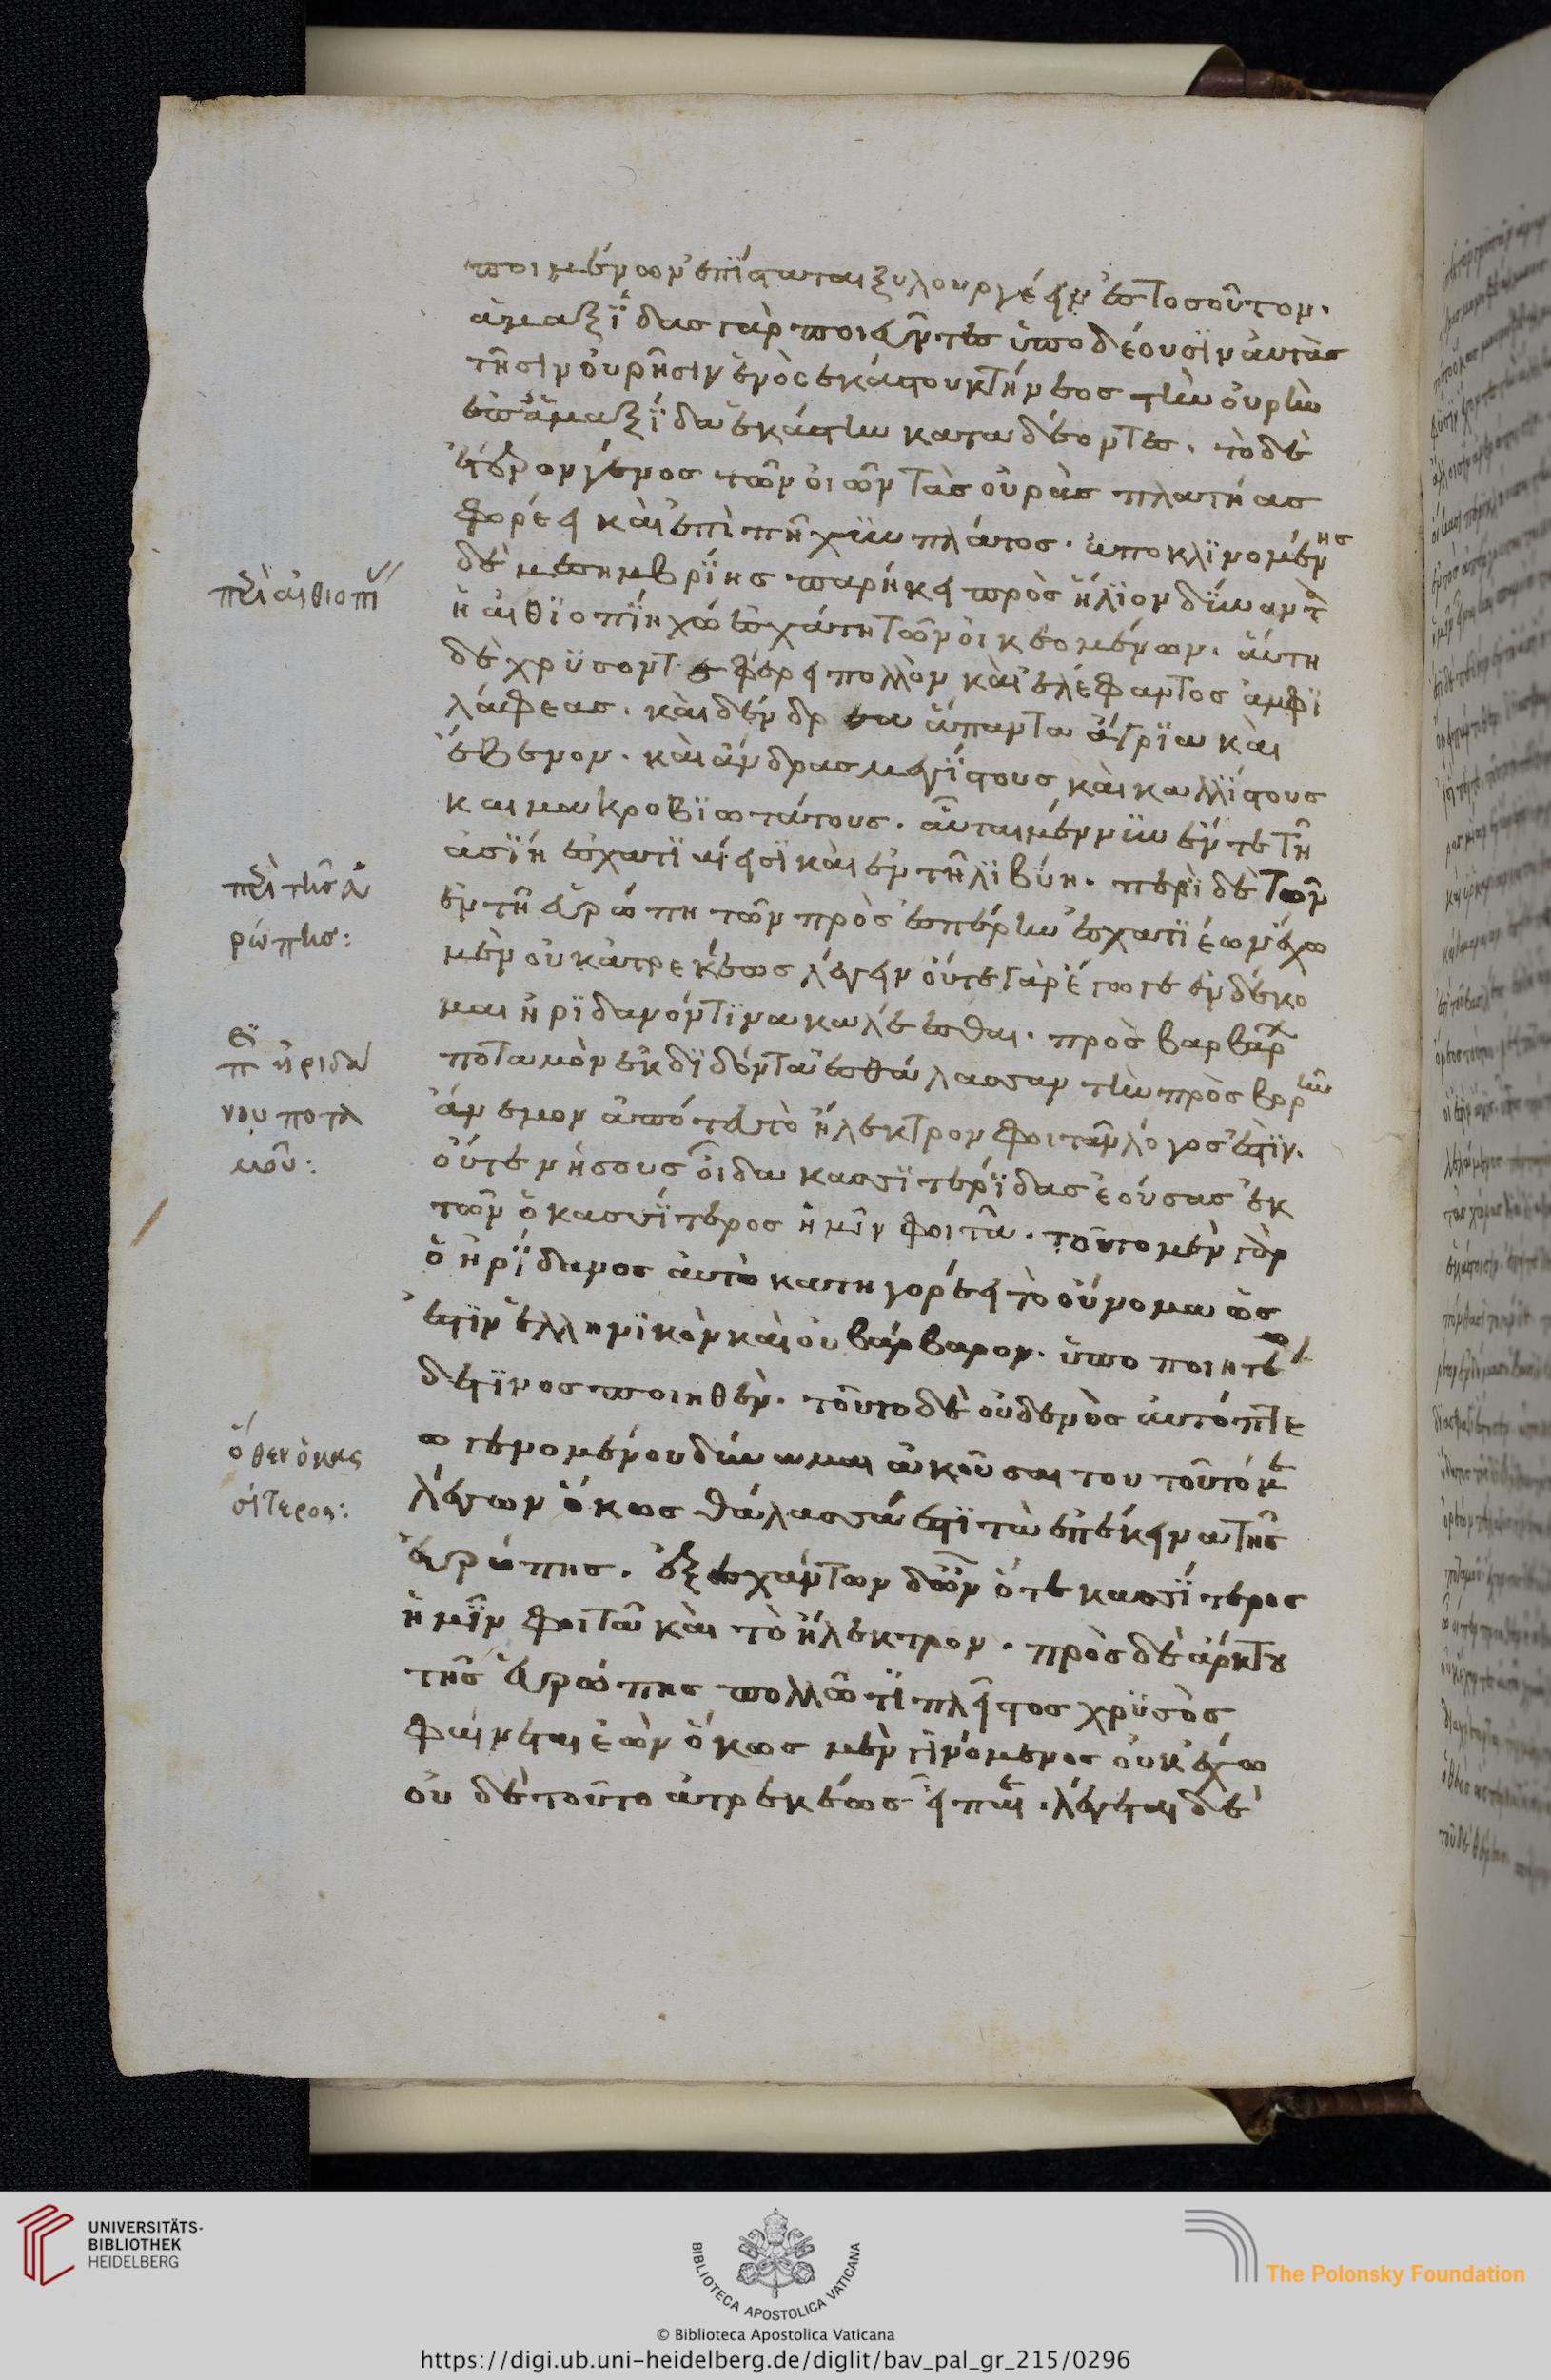 ποιμένων ἐπίσταται ξυλουργέειν ἐς τοσοῦτον.
ἁμαξίδας γὰρ ποιεῦντες ὑποδέουσιν αὐτὰς
τῆσιν οὐρῆσιν ἑνὸς ἑκάστου κτήνεος τὴν οὐρὴν
ἐπ ἁμαξίδα ἑκάστην καταδέοντες. τὸ δὲ
ἕτερον γένος τῶν οἰῶν τὰς οὐρὰς πλατήας
φορέει καὶ ἐπὶ πῆχυν πλάτος. ἀποκλινομένης
δὲ μεσημβρίης παρήκει πρὸς ἥλιον δύναντα
ἡ αἰθιοπίη χώ ἐσχάτη τῶν οἰκεομένων. αὕτη
δὲ χρυσόν τε φέρει πολλὸν καὶ ἐλέφαντος ἀμφι
λάφεας. καὶ δένδρεα ἅπαντα ἄγρια καὶ
ἔβενον. καὶ ἄνδρας μεγίστους καὶ καλλίστους
καὶ μακροβιωτάτους. αὗται μέν νυν ἔν τε τῆ
ἀσίη ἐσχατιαί εἰσὶ καὶ ἐν τῆ λιβύη. περὶ δὲ τῶν
ἐν τῆ εὐρώπη τῶν πρὸς ἑσπέρην ἐσχατιέων ἔχω
μὲν οὐκ ἀτρεκέως λέγειν οὔτε γὰρ ἔγωγε ἐνδέκο
μαι ἠριδανόν τινα καλέεσθαι. πρὸς βαρβάρων
ποταμὸν ἐκδιδόντα ἐς θάλασσαν τὴν πρὸς βορῆν
ἄνεμον ἀπό τευ τὸ ἤλεκτρον φοιτᾶν λόγος ἐστίν.
οὔτε νήσους οἶδα κασσιτερίδας ἐούσας ἐκ
τῶν ὁ κασσίτερος ἡμῖν φοιτᾶ. τοῦτο μὲν γὰρ
ὁ ἠριδανος αὐτὸ κατηγορέει τὸ οὔνομα ὡς
ἔστιν ἑλληνικὸν καὶ οὐ βάρβαρον. ὑπο ποιητέω
δέ τινος ποιηθέν. τοῦτο δὲ οὐδενὸς αὐτόπτε
ω γενομένου δύναμαι ἀκοῦσαι του τοῦτο μ
λέγων ὅκως θάλασσά ἐστι τὰ ἐπέκεινα τῆς
εὐρώπης. ἐξ ἐσχάτων δῶν ὅ τε κασσίτερος
ἡμῖν φοιτᾶ καὶ τὸ ἤλεκτρον. πρὸς δὲ ἄρκτου
τῆς εὐρώπης πολλῶ τι πλεῖστος χρυσὸς
φαίνεται ἐὼν ὅκως μὲν γινόμενος οὐκ ἔχω
οὐ δὲ τοῦτο ἀτρεκέως εἶπαι. λέγεται δὲ
περὶ αἰθιοπί
περὶ τῆς εὐ
ρώπης:
περὶ ἠριδα
νου ποτα
μοῦ:
ὅθεν ὁ κας
σίτερος:
UNIVERSITÄTS-
BIBLIOTHEK
HEIDELBERG
BIBLIOTECA APOSTOLICA VATICANA
The Polonsky Foundation
© Biblioteca Apostolica Vaticana
https://digi.ub.uni-heidelberg.de/diglit/bav_pal_gr_215/0296